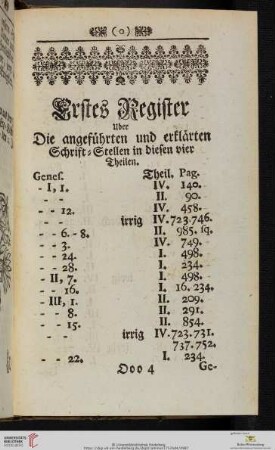 ( o )
Erstes Register
Uber
Die angeführten und erklärten
Schrift-Stellen in diesen vier
Theilen.
Genes. Theil. Pag.
- I, 1. IV. 140.
- - II. 90.
- - 12. IV. 458.
- - irrig IV. 723. 746.
- - 6. - 8. II. 985. sq.
- - 3. IV. 749.
- - 24. I. 498.
- - 28. I. 234.
- II, 7. I. 498.
- - 16. I. 16. 234.
- III, 1. II. 209.
- - 8. II. 291.
- - 15. II. 854.
- - irrig IV. 723. 731.
737. 752.
- - 22. I. 234.
Ooo 4 Ge-
UNIVERSITÄTS-
BIBLIOTHEK
HEIDELBERG
© Universitätsbibliothek Heidelberg
Baden-Württemberg